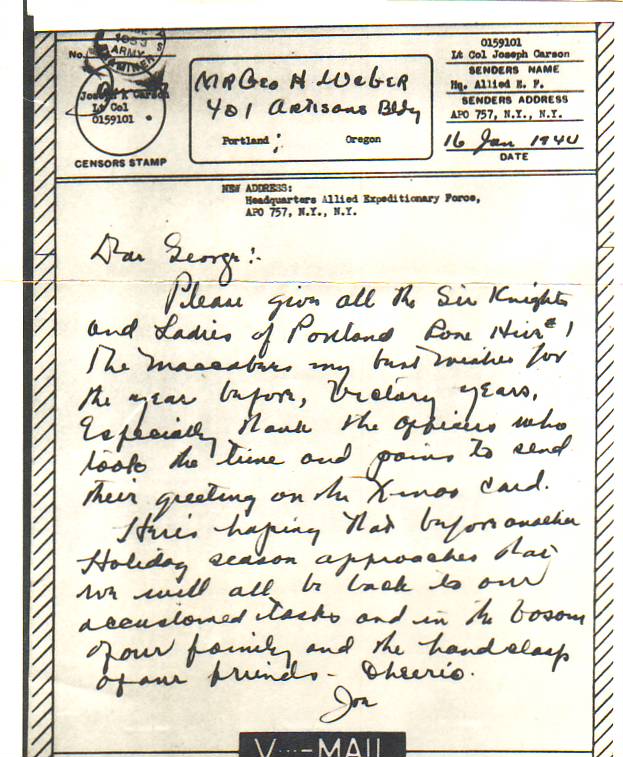 No.
ARMY
Joseph K Carson
Lt Col
0159101
CENSORS STAMP
Mr Geo H Weber
401 Artisans Bldg
Portland ; Oregon
0159101
Lt Col Joseph Carson
SENDERS NAME
Hq. Allied E. F.
SENDERS ADDRESS
APO 757, N.Y., N.Y.
16 Jan 1944
DATE
NEW ADDRESS:
Headquarters Allied Expeditionary Force,
APO 757, N.Y., N.Y.
Dear George:-
Please give all the Sir Knights
and Ladies of Portland Rose Hive #1
The Maccabees my best wishes for
the year before, Victory years,
Especially thank the officers who
took the time and pains to send
their greeting on the Xmas Card.
Here's hoping that before another
Holiday season approaches that
we will all be back to our
accustomed tasks and in the bosom
of our family and the handclasp
of our friends - Cheerio.
Joe
V···—MAIL